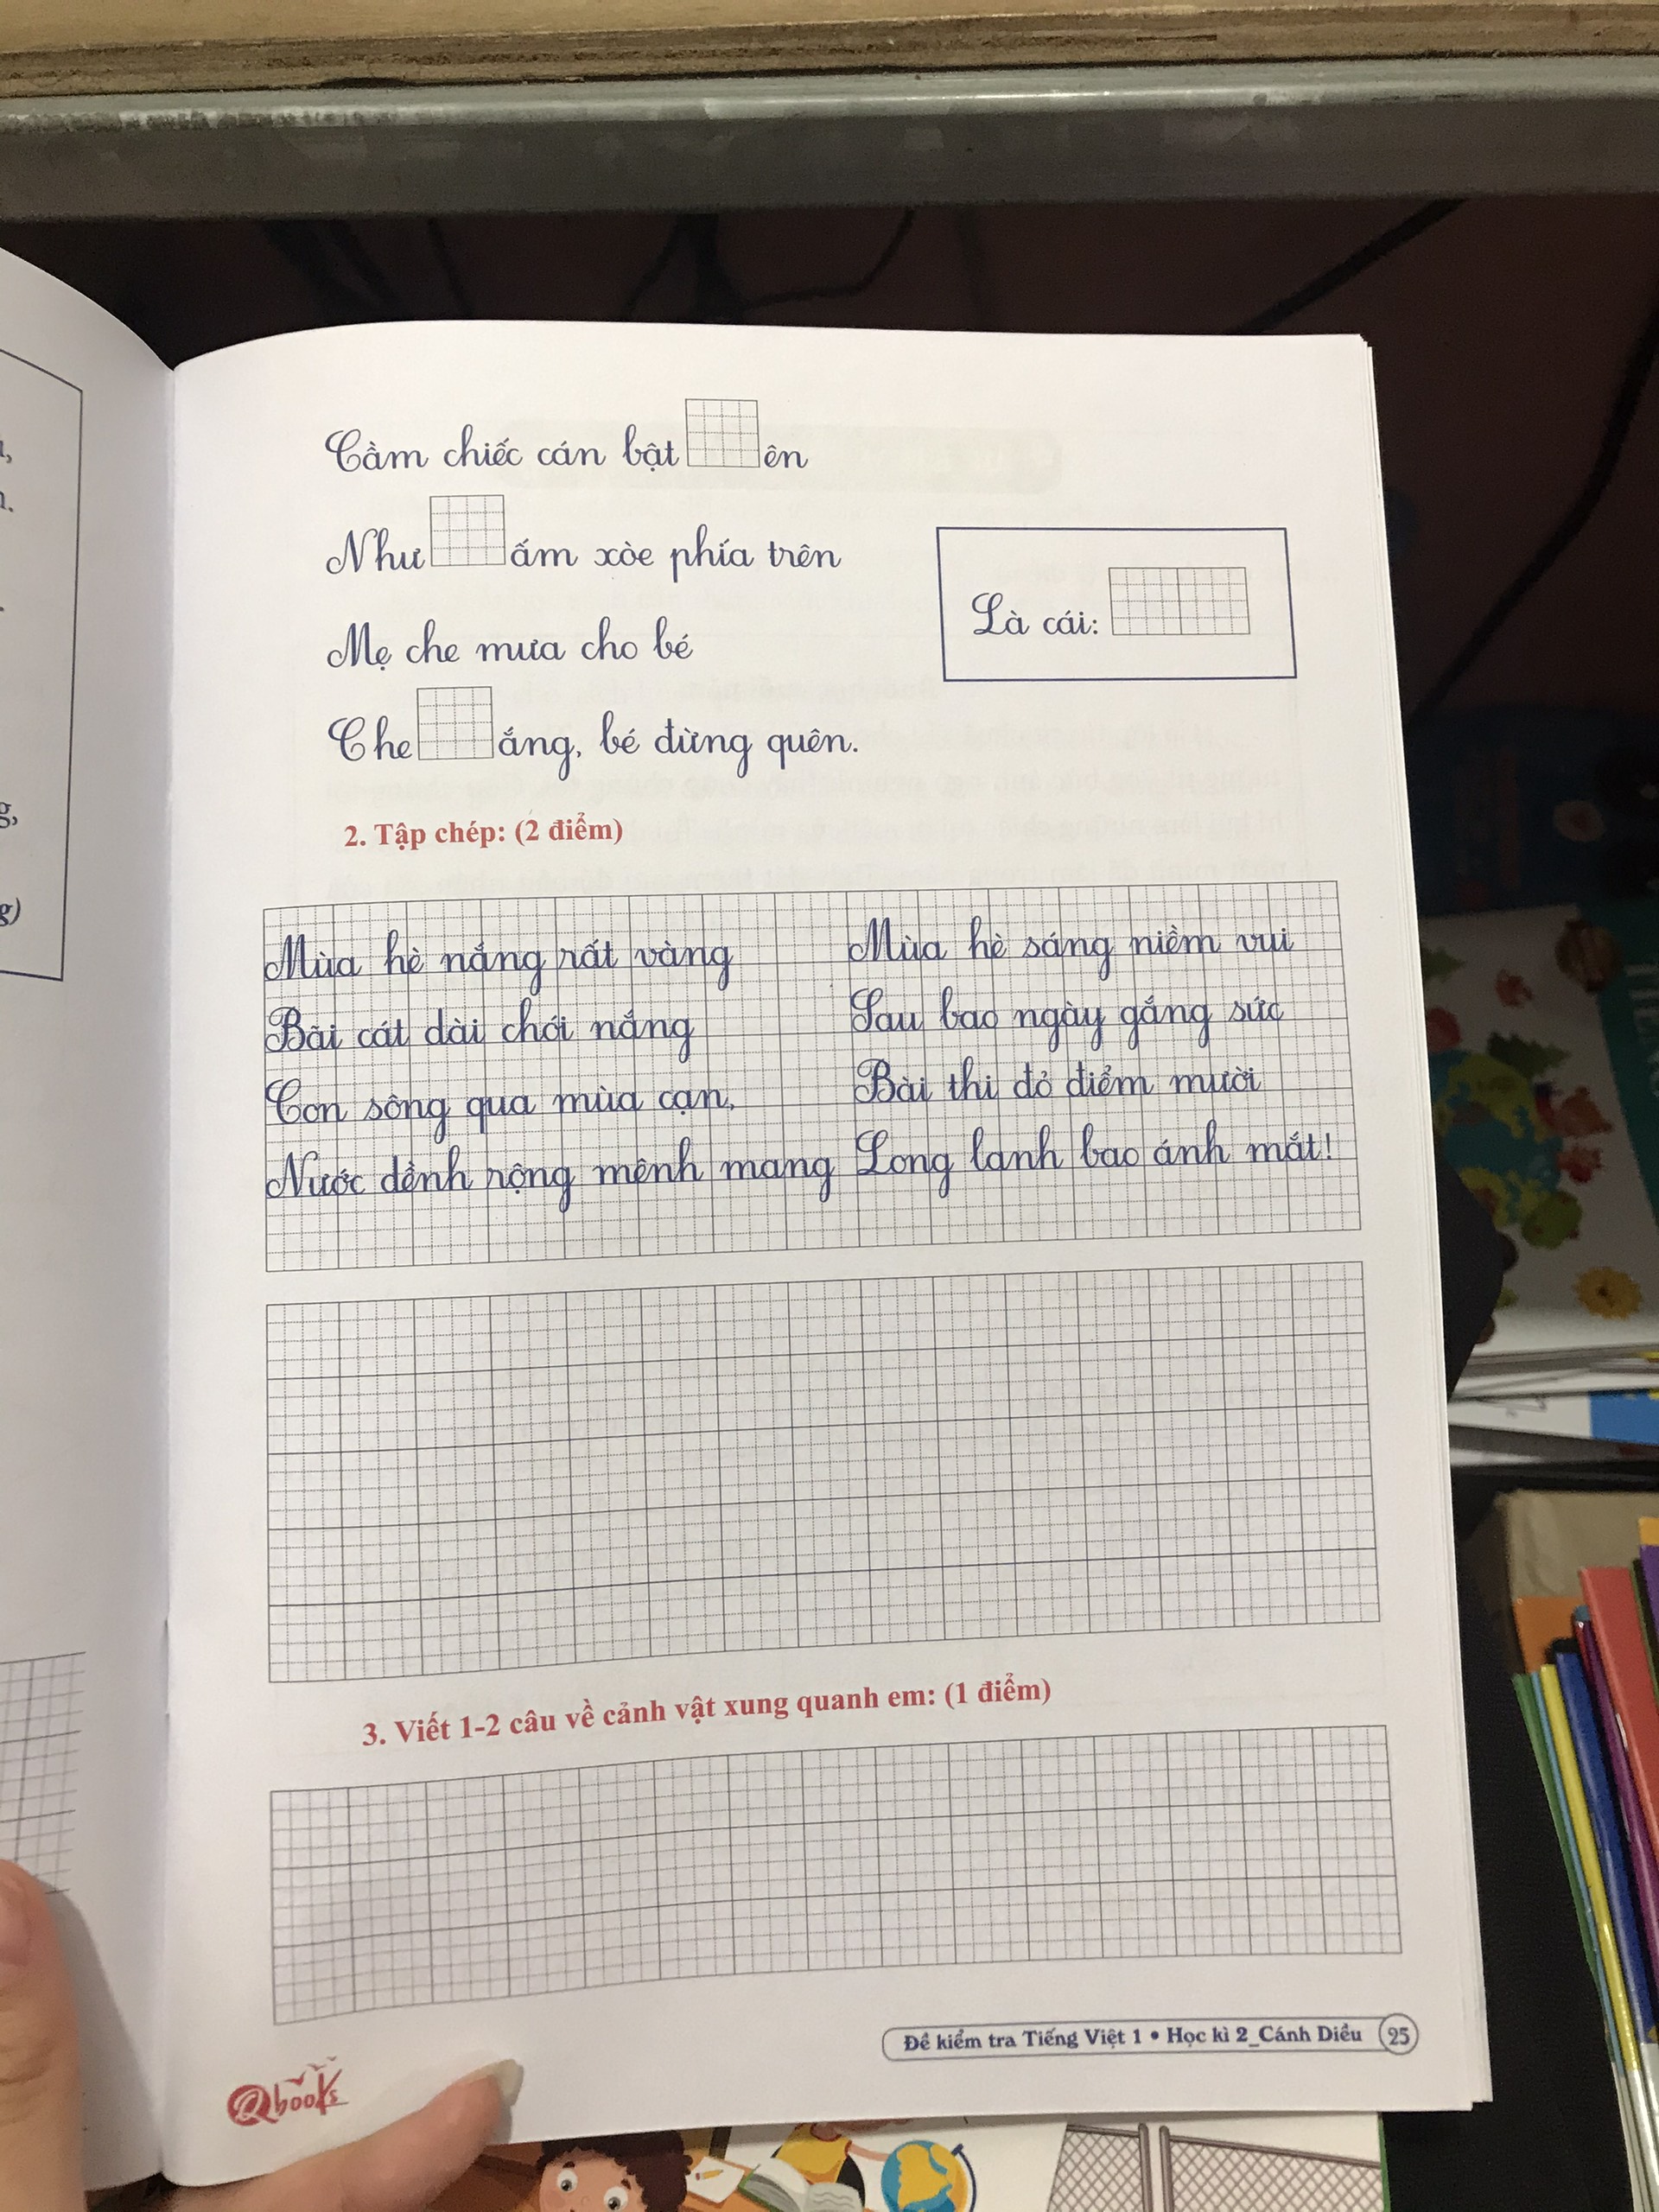 Cầm chiếc cán bật ên
Như ấm xòe phía trên
Mẹ che mưa cho bé
Che ắng, bé đừng quên.
Là cái:
2. Tập chép: (2 điểm)
Mùa hè nắng rất vàng
Bãi cát dài chói nắng
Con sông qua mùa cạn,
Nước dềnh rộng mênh mang
Mùa hè sáng niềm vui
Sau bao ngày gắng sức
Bài thi đỏ điểm mười
Long lanh bao ánh mắt!
3. Viết 1-2 câu về cảnh vật xung quanh em: (1 điểm)
Đề kiểm tra Tiếng Việt 1 • Học kì 2_Cánh Diều 25
Qbooks
g)